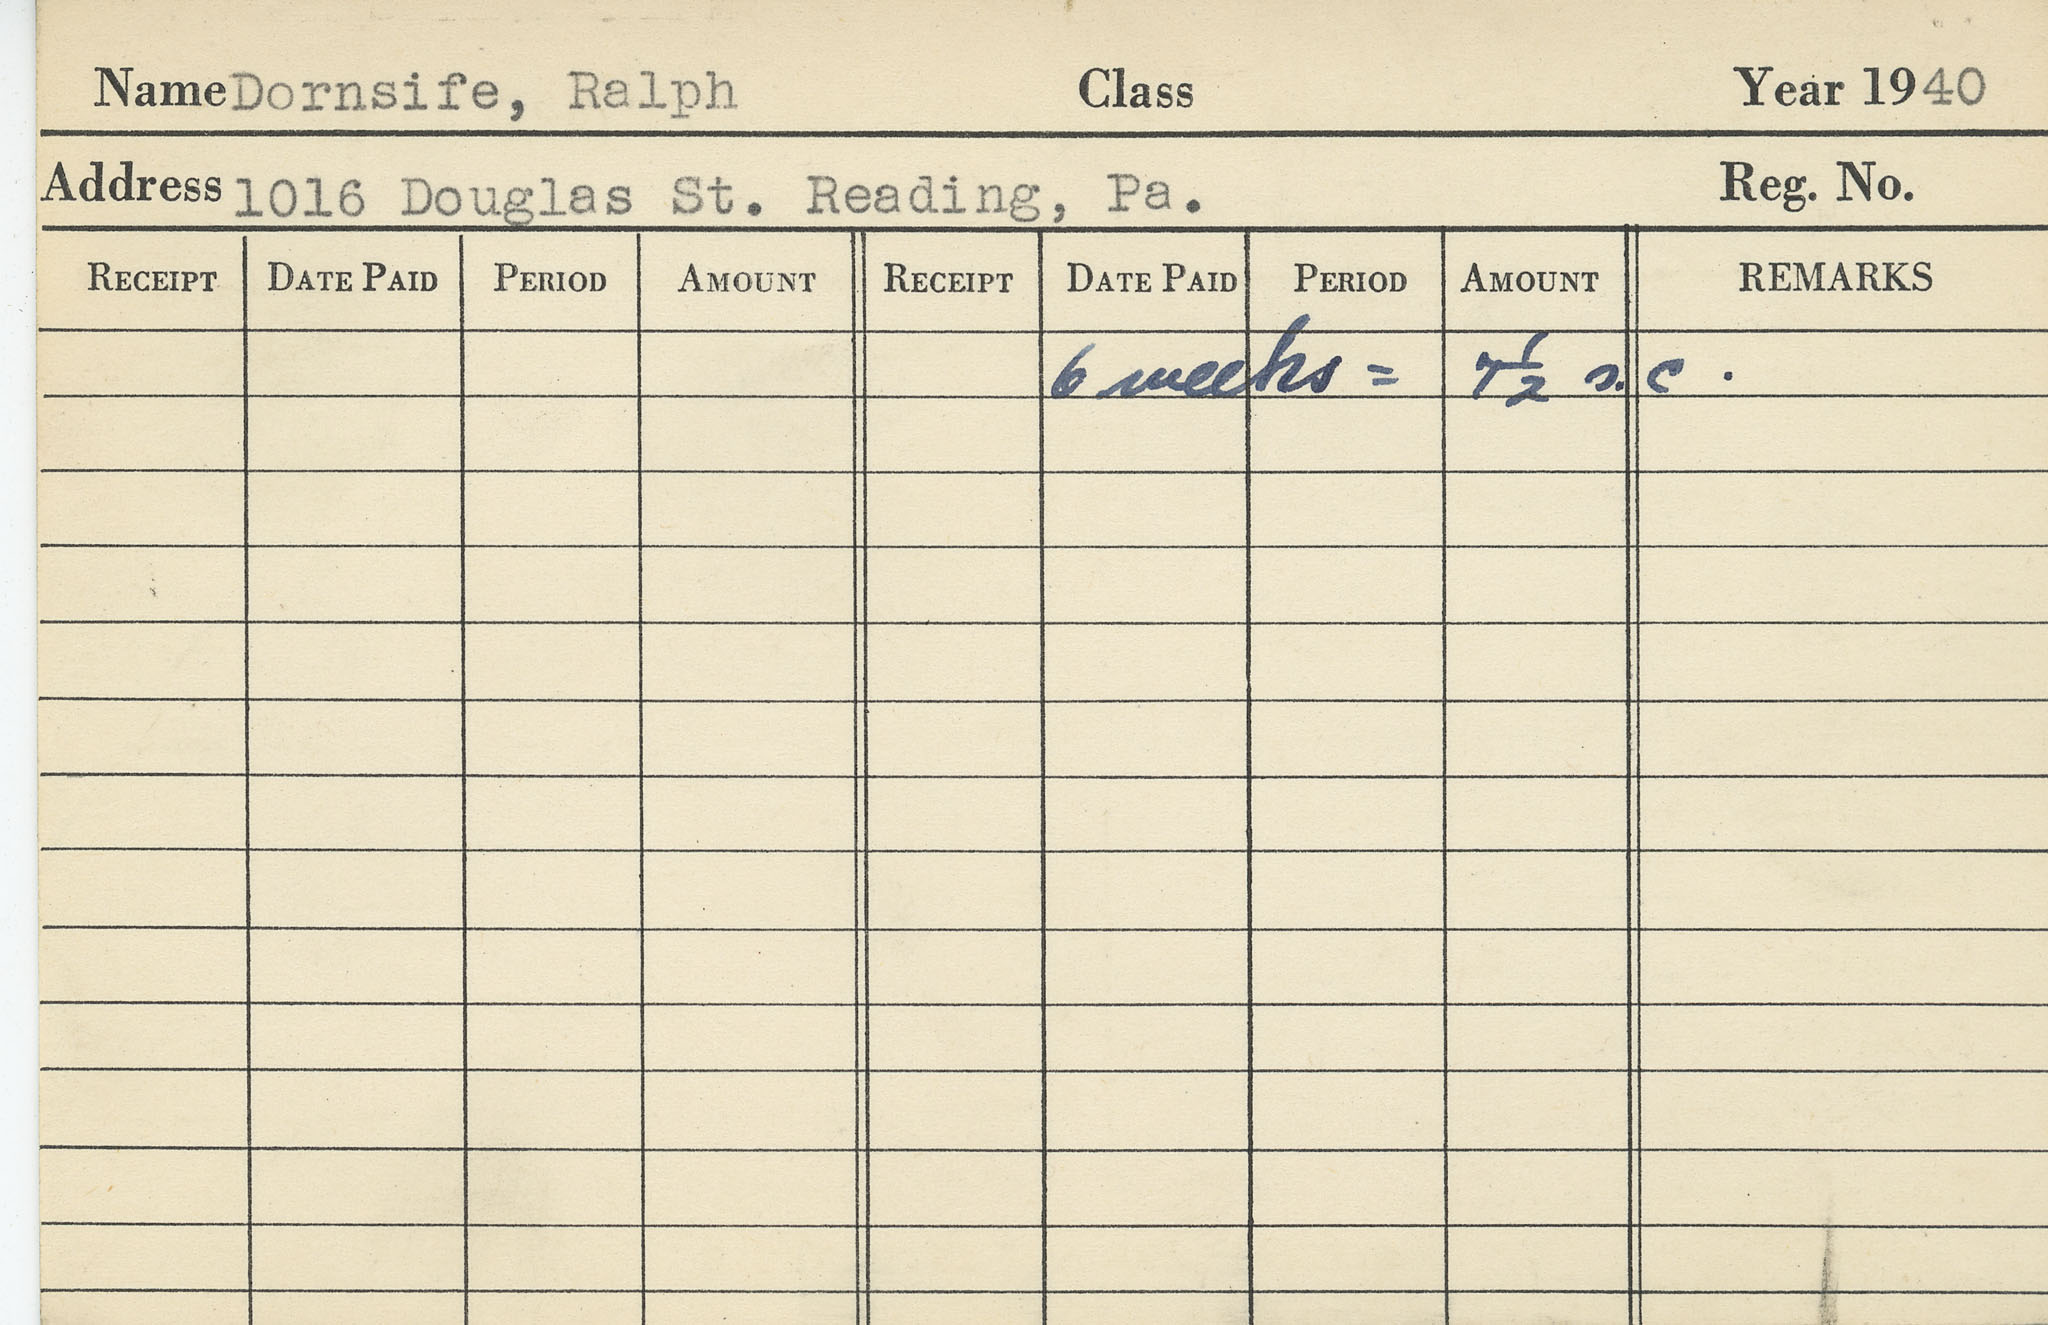 Name Dornsife, Ralph Class Year 1940
Address 1016 Douglas St. Reading, Pa. Reg. No.
RECEIPT DATE PAID PERIOD AMOUNT RECEIPT DATE PAID PERIOD AMOUNT REMARKS
6 weeks = 7 1/2 s.c.